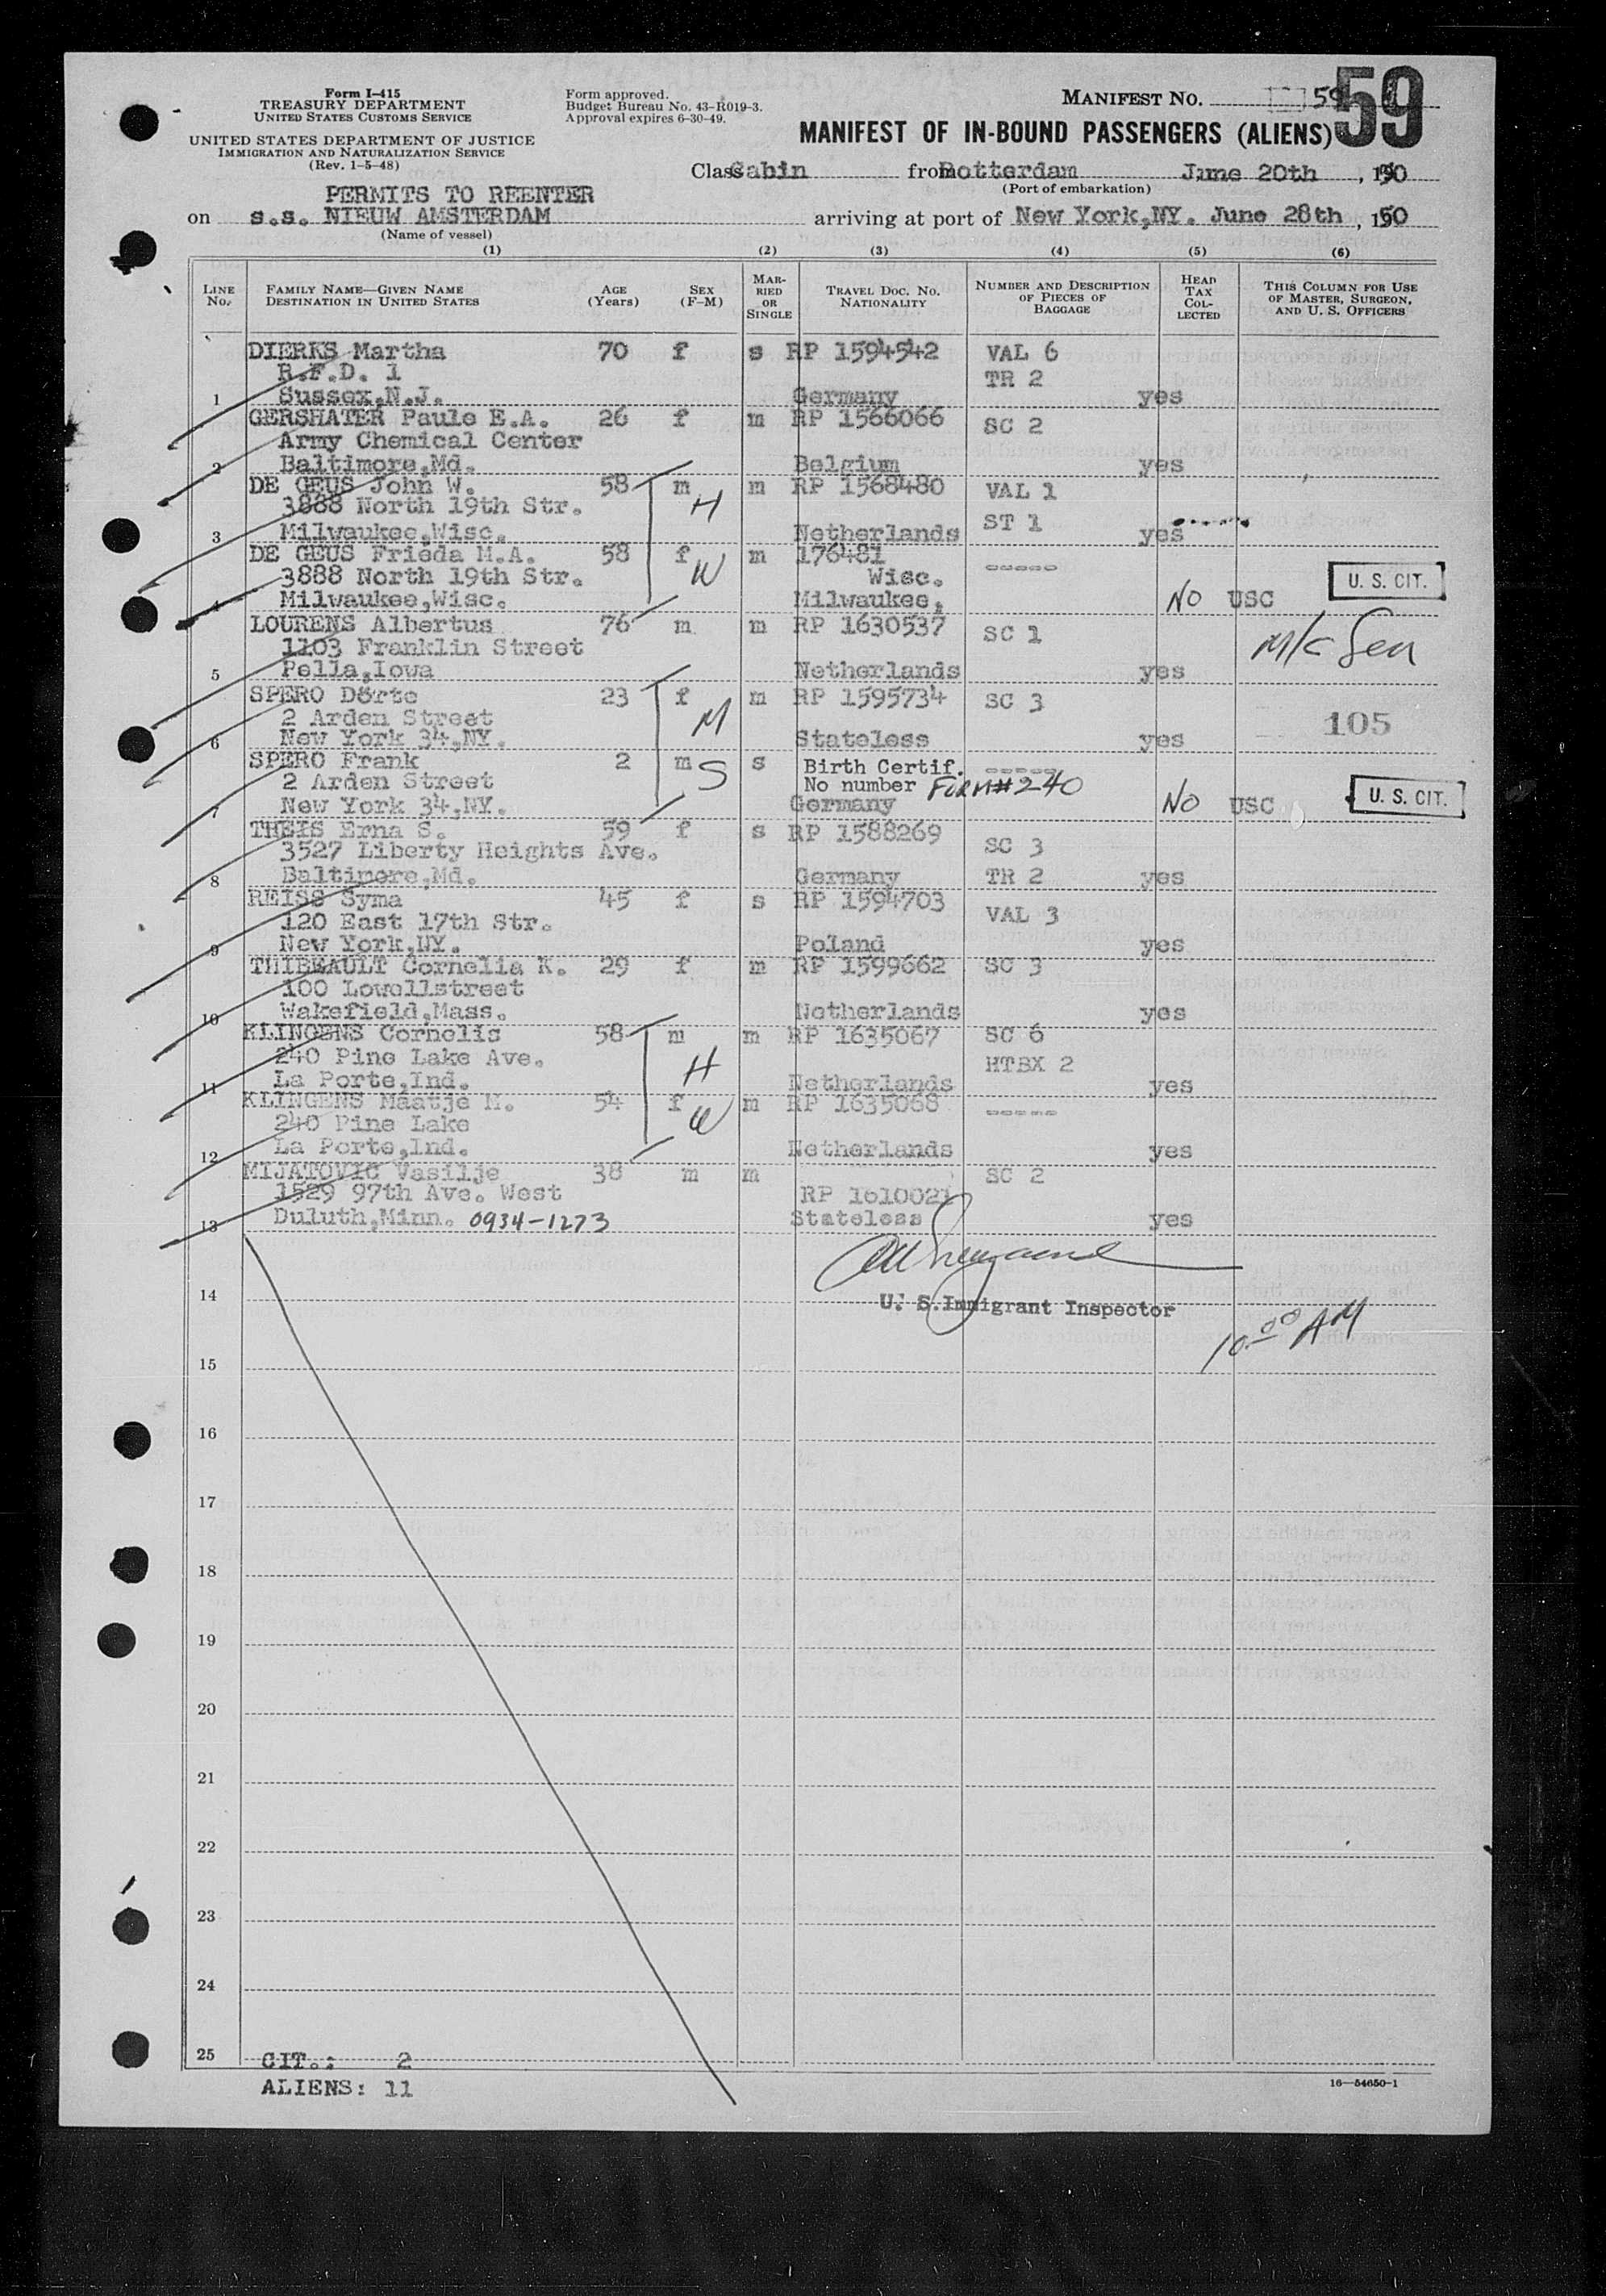 Form I-415
TREASURY DEPARTMENT
UNITED STATES CUSTOMS SERVICE
UNITED STATES DEPARTMENT OF JUSTICE
IMMIGRATION AND NATURALIZATION SERVICE
(Rev. 1-5-48)
Form approved.
Budget Bureau No. 43-R019-3.
Approval expires 6-30-49.
MANIFEST NO. 59 59
MANIFEST OF IN-BOUND PASSENGERS (ALIENS)
Class Cabin from Rotterdam June 20th, 1950
(Port of embarkation)
PERMITS TO REENTER
on s.s. NIEUW AMSTERDAM arriving at port of New York,NY. June 28th, 1950
(Name of vessel)
(1) (2) (3) (4) (5) (6)
LINE NO. FAMILY NAME—GIVEN NAME DESTINATION IN UNITED STATES AGE (Years) SEX (F-M) MARRIED OR SINGLE TRAVEL DOC. NO. NATIONALITY NUMBER AND DESCRIPTION OF PIECES OF BAGGAGE HEAD TAX COLLECTED THIS COLUMN FOR USE OF MASTER, SURGEON, AND U. S. OFFICERS
DIERKS Martha 70 f s RP 1594542 VAL 6
R.F.D. 1 TR 2
1 Sussex,N.J. Germany yes
GERSHATER Paule E.A. 26 f m RP 1566066 SC 2
Army Chemical Center
2 Baltimore,Md. Belgium yes
DE GEUS John W. 58 m H m RP 1568480 VAL 1
3888 North 19th Str. ST 1
3 Milwaukee,Wisc. Netherlands yes
DE GEUS Frieda M.A. 58 f W m 176481 -----
3888 North 19th Str. Wisc.
4 Milwaukee,Wisc. Milwaukee, No USC U. S. CIT.
LOURENS Albertus 76 m m RP 1630537 SC 1
1103 Franklin Street
5 Pella,Iowa Netherlands yes
SPERO Dörte 23 f M m RP 1595734 SC 3
2 Arden Street 105
6 New York 34,NY. Stateless yes
SPERO Frank 2 m S s Birth Certif. -----
2 Arden Street No number Form #240
7 New York 34,NY. Germany No USC U. S. CIT.
THEIS Erna S. 59 f s RP 1588269
3527 Liberty Heights Ave. SC 3
8 Baltimore,Md. Germany TR 2 yes
REISS Syma 45 f s RP 1594703
120 East 17th Str. VAL 3
9 New York,NY. Poland yes
THIBEAULT Cornelia K. 29 f m RP 1599662 SC 3
100 Lowellstreet
10 Wakefield,Mass. Netherlands yes
KLINGENS Cornelis 58 m H m RP 1635067 SC 6
240 Pine Lake Ave. HTBX 2
11 La Porte,Ind. Netherlands yes
KLINGENS Maatje M. 54 f W m RP 1635068 -----
240 Pine Lake
12 La Porte,Ind. Netherlands yes
MIJATOVIC Vasilje 38 m m SC 2
1529 97th Ave. West RP 1610021
13 Duluth,Minn. 0934-1273 Stateless yes
14 U. S. Immigrant Inspector
10:00 AM
15
16
17
18
19
20
21
22
23
24
25 CIT.: 2
ALIENS: 11
16—54650-1